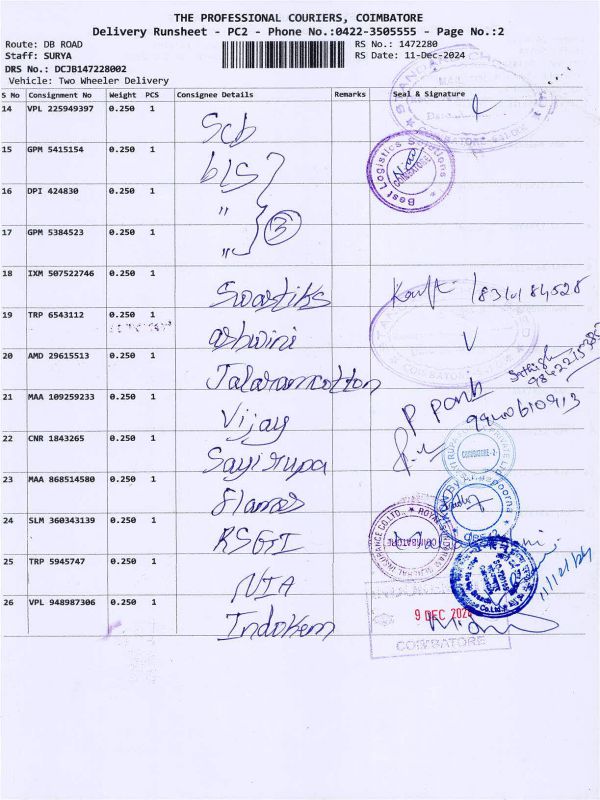 THE PROFESSIONAL COURIERS, COIMBATORE
Delivery Runsheet - PC2 - Phone No.:0422-3505555 - Page No.:2
Route: DB ROAD
RS No.: 1472280
Staff: SURYA
RS Date: 11-Dec-2024
DRS No.: DCJB147228002
Vehicle: Two Wheeler Delivery
S No Consignment No Weight PCS Consignee Details Remarks Seal & Signature
14 VPL 225949397 0.250 1 Scb
15 GPM 5415154 0.250 1 bls
Best Logistics Solutions COIMBATORE
16 DPI 424830 0.250 1 "
3
17 GPM 5384523 0.250 1 "
18 IXM 507522746 0.250 1 Swastiks
19 TRP 6543112 0.250 1 ashwini
20 AMD 29615513 0.250 1 Jalaramcotton
21 MAA 109259233 0.250 1 Vijay
22 CNR 1843265 0.250 1 Sayirupa
23 MAA 868514580 0.250 1 Flames
24 SLM 360343139 0.250 1 RSGI
25 TRP 5945747 0.250 1 NIA
26 VPL 948987306 0.250 1 Indokem
9 DEC 2024
COIMBATORE